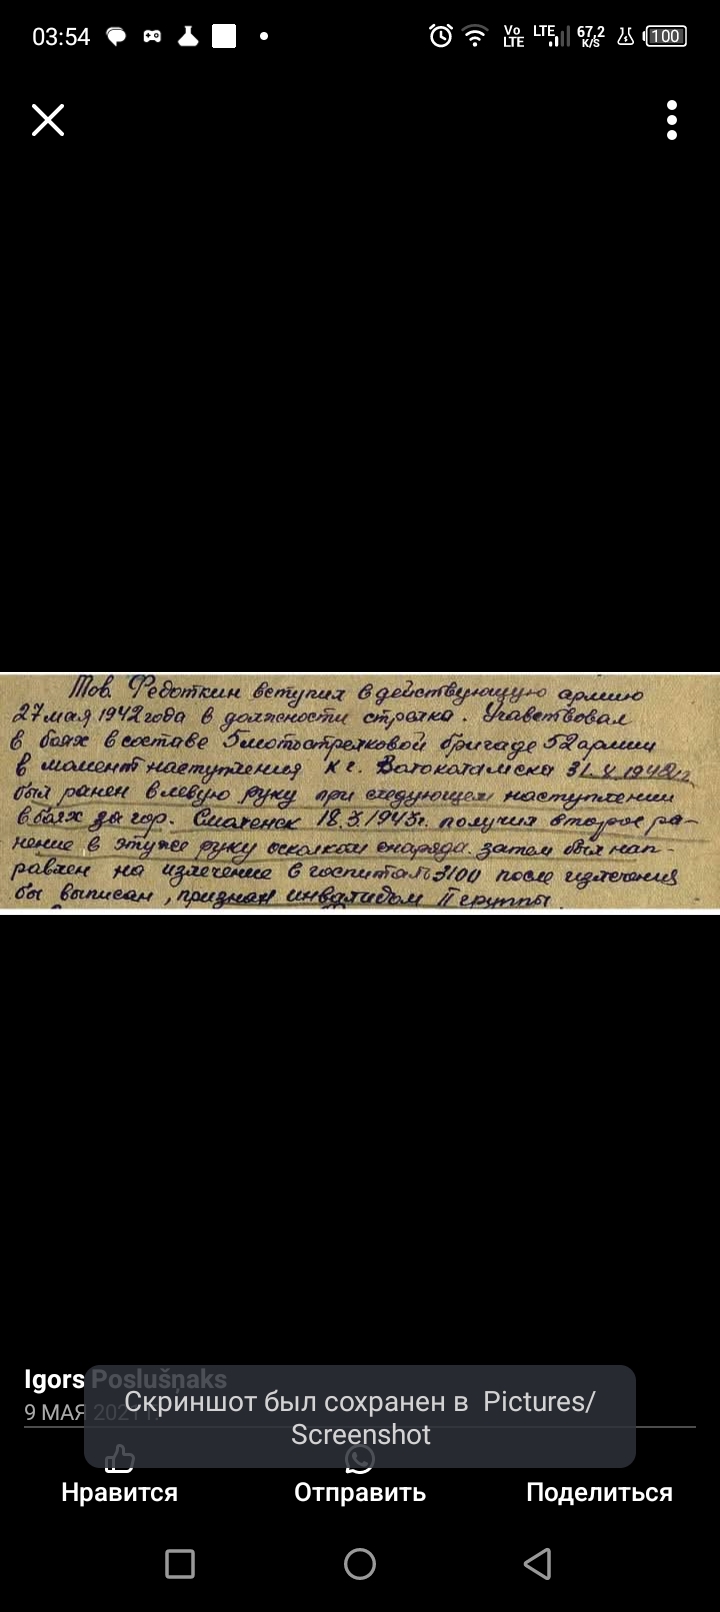 03:54
Vo
LTE
LTE
67,2
K/S
100
Тов. Федоткин вступил в действующую армию
27 мая 1942 года в должности стрелка. Учавствовал
в боях в составе 5 мотострелковой бригаде 52 армии
в момент наступления к г. Волоколамска 31.X.1942 г.
был ранен в левую руку при следующем наступлении
в боях за гор. Смоленск 18.3.1943г. получил второе ра-
нение в эту же руку осколком снаряда. затем был нап-
равлен на излечение в госпиталь 3100 после излечения
бы выписан, признан инвалидом II группы.
Igors Poslušņaks
9 МАЯ 2021 г.
Скриншот был сохранен в Pictures/
Screenshot
Нравится Отправить Поделиться